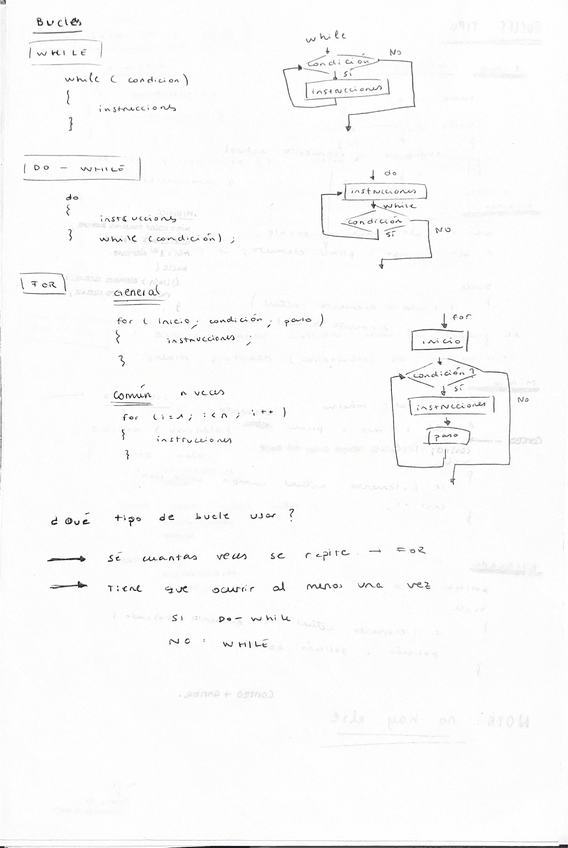 Bucles
WHILE
while ( condicion )
{
instrucciones
}
while
condición
NO
sí
instrucciones
DO - WHILE
do
{
instrucciones
} while (condición) ;
do
instrucciones
while
condición
sí
NO
FOR
General
for ( inicio; condición; paso )
{
instrucciones ;
}
Común n veces
for ( i=1; i<n; i++ )
{
instrucciones
}
for
inicio
condición?
sí
NO
instrucciones
paso
¿Qué tipo de bucle usar?
→ sé cuantas veces se repite → FOR
→ Tiene que ocurrir al menos una vez
SI: DO-while
NO: WHILE